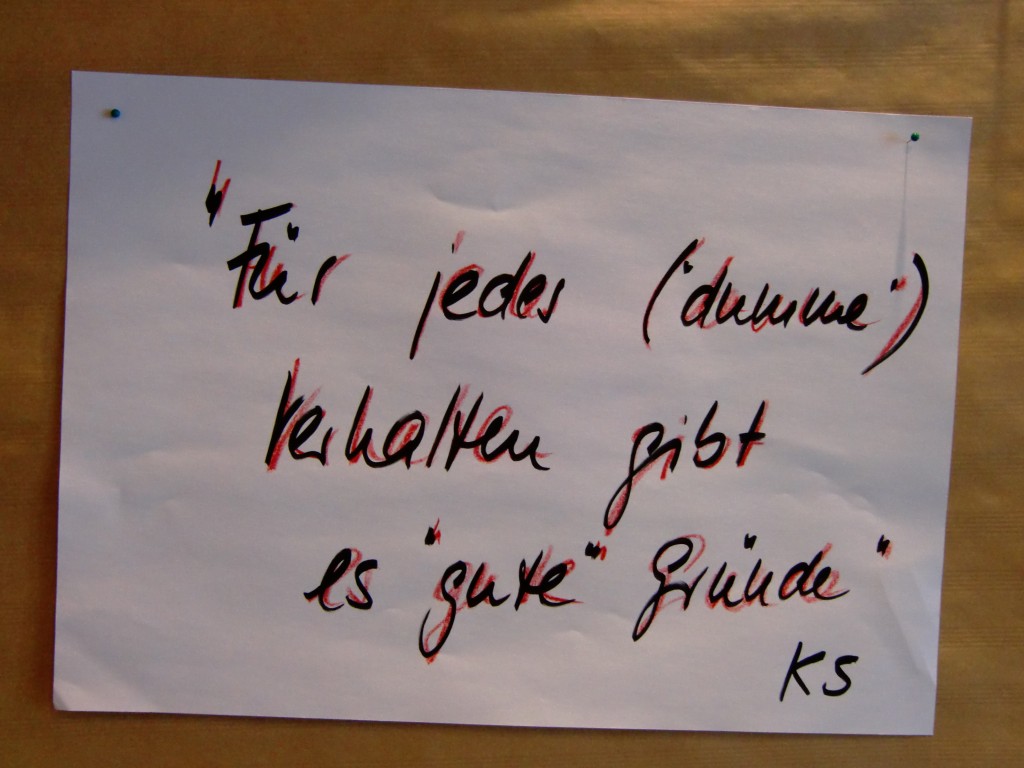 "Für jedes ("dumme")
Verhalten gibt
es "gute" Gründe"
KS